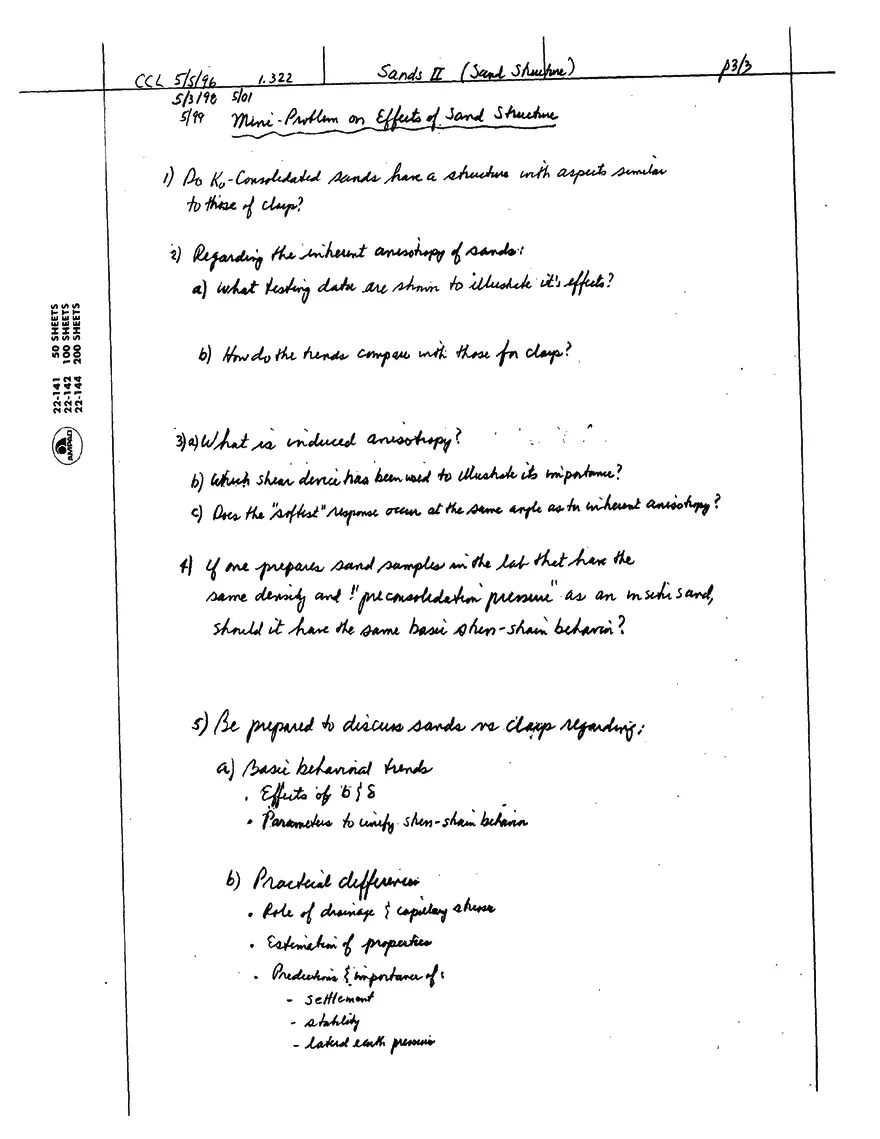 CCL 5/5/96 1.322 Sands II (Sand Structure) p3/3
5/3/98 5/01
5/99 Mini-Problem on Effects of Sand Structure
1) Do K₀-Consolidated sands have a structure with aspects similar
to those of clays?
2) Regarding the inherent anisotropy of sands:
a) What testing data are shown to illustrate it's effects?
b) How do the trends compare with those for clays?
3) a) What is induced anisotropy?
b) Which shear device has been used to illustrate its importance?
c) Does the "softest" response occur at the same angle as for inherent anisotropy?
4) If one prepares sand samples in the lab that have the
same density and "preconsolidation pressure" as an in situ sand,
should it have the same basic stress-strain behavior?
5) Be prepared to discuss sands vs clays regarding:
a) Basic behavioral trends
• Effects of b & δ
• Parameters to unify stress-strain behavior
b) Practical differences
• Role of drainage & capillary stresses
• Estimation of properties
• Predictions & importance of:
- settlement
- stability
- lateral earth pressure
22-141 50 SHEETS
22-142 100 SHEETS
22-144 200 SHEETS
AMPAD